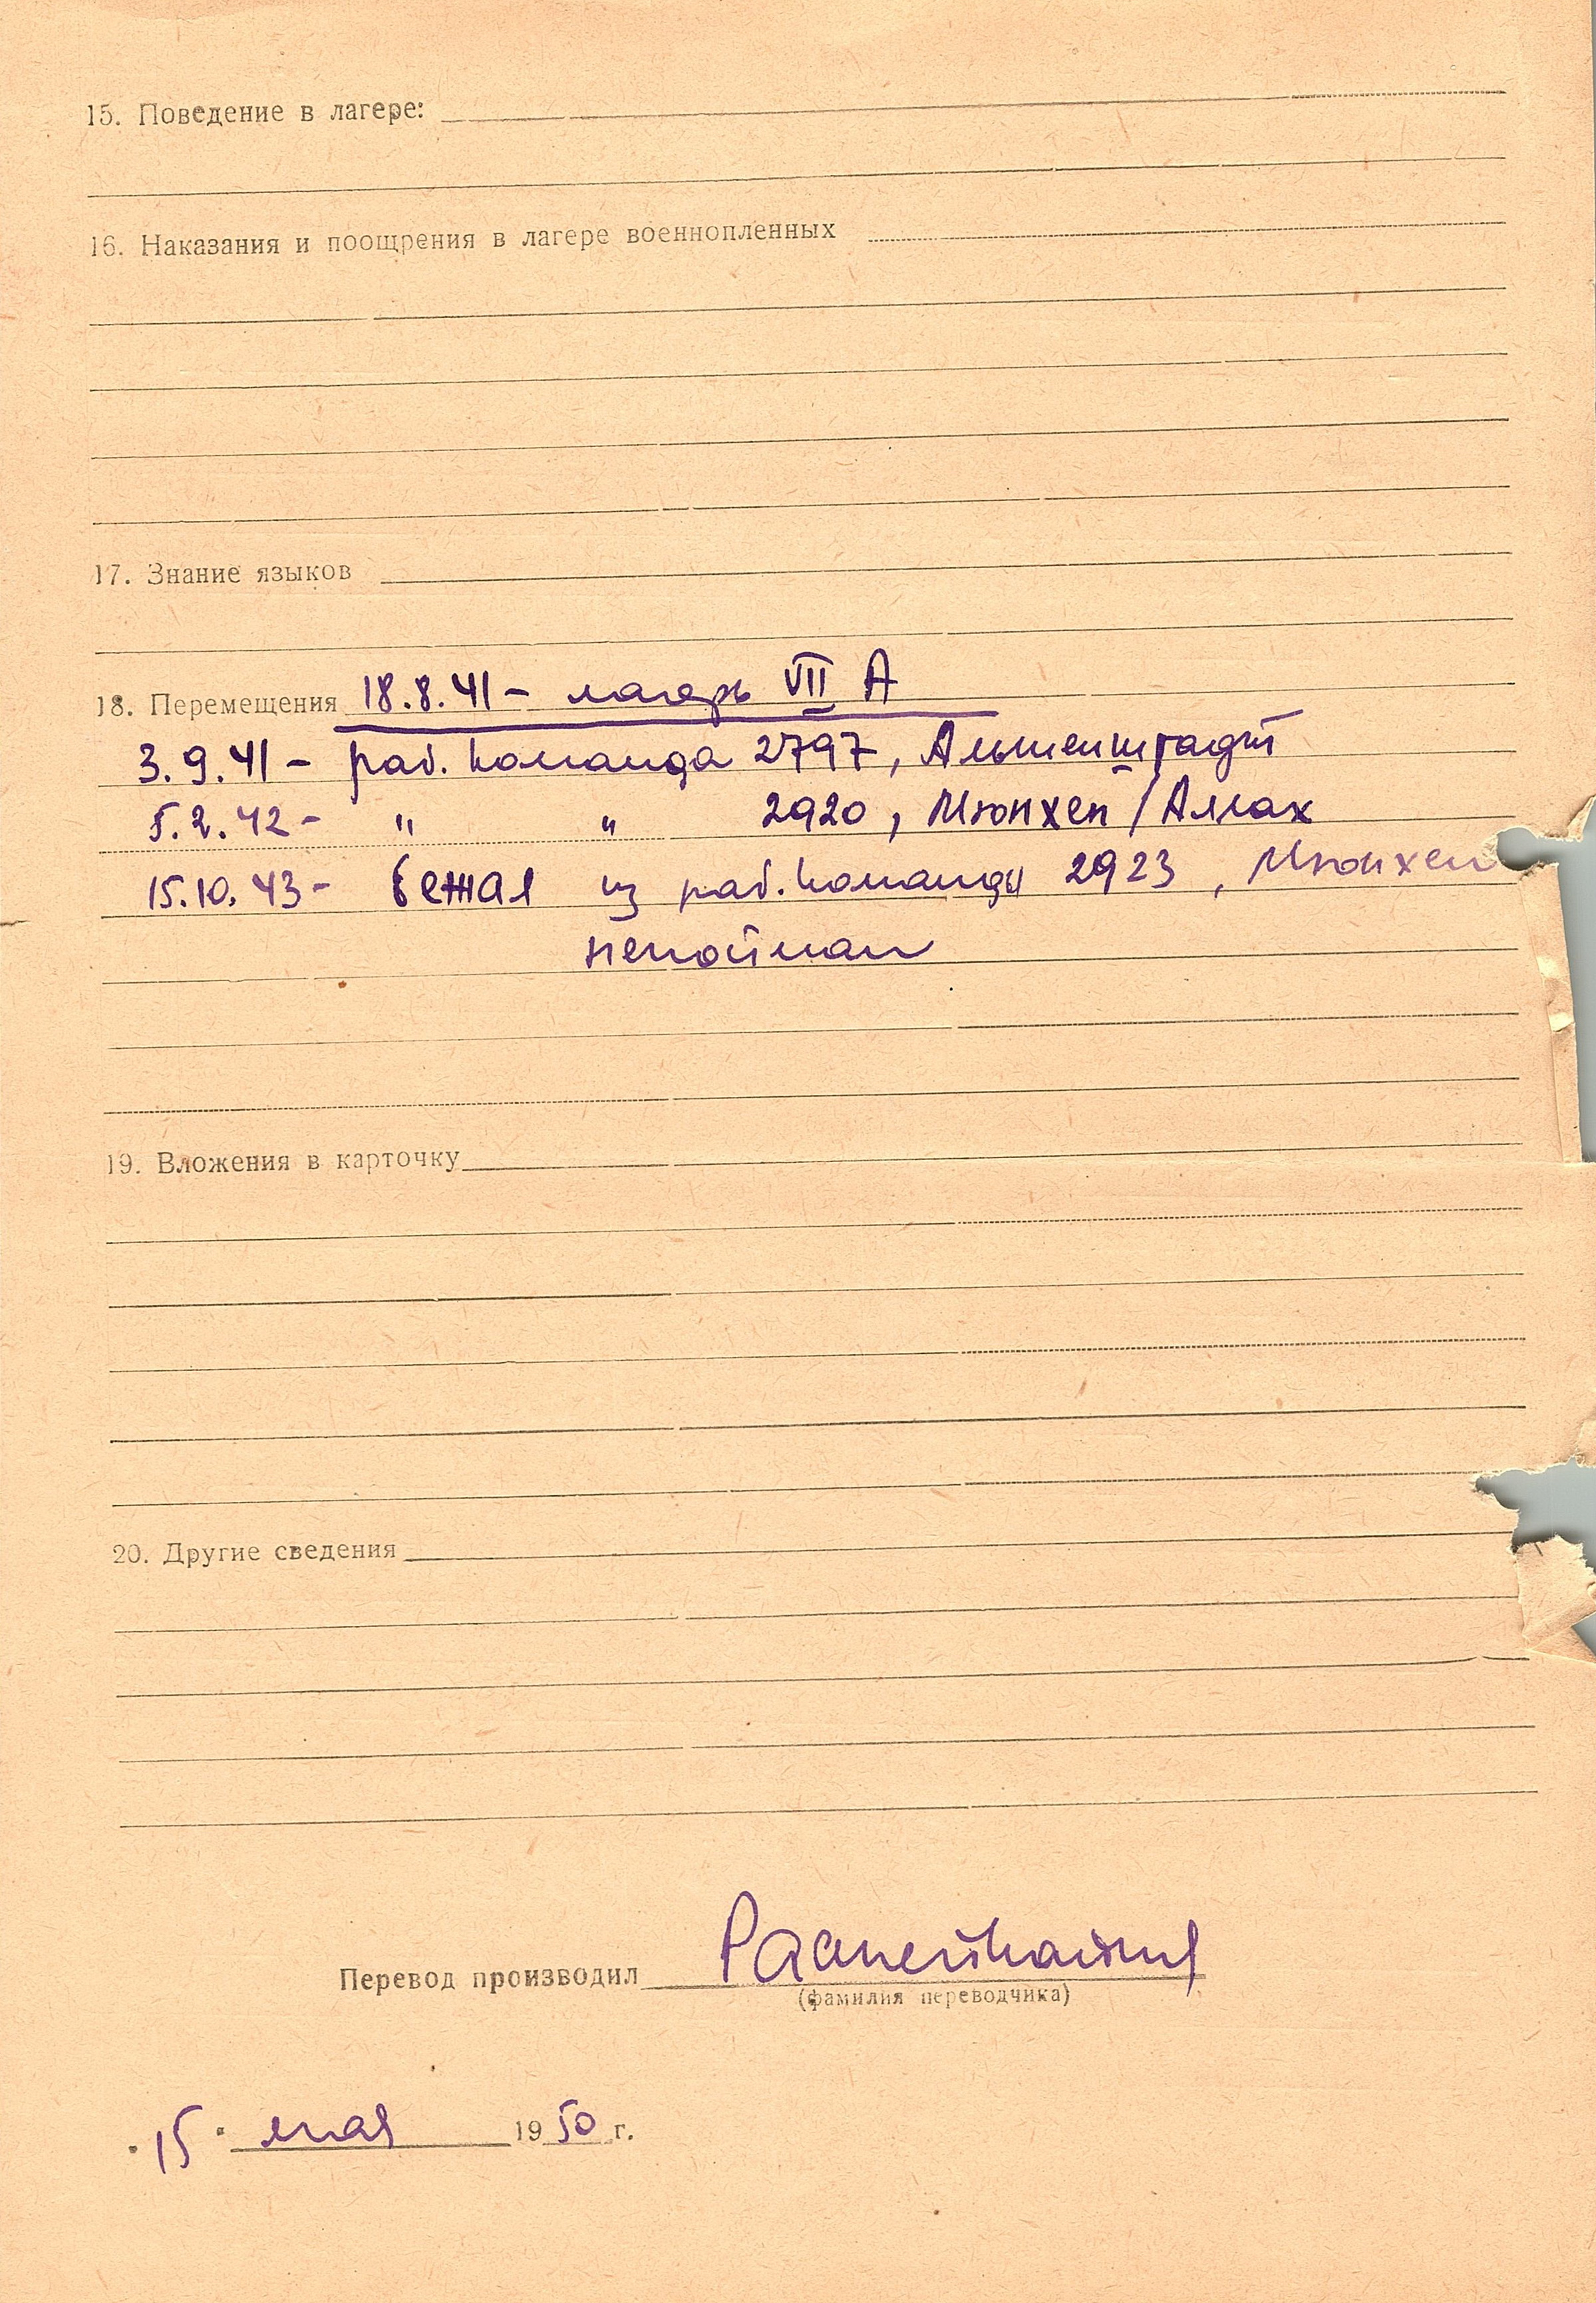 15. Поведение в лагере:
16. Наказания и поощрения в лагере военнопленных
17. Знание языков
18. Перемещения 18.8.41 - лагерь VII А
3.9.41 - раб. команда 2797, Альтенштадт
5.2.42 - " " 2920, Мюнхен / Аллах
15.10.43 - бежал из раб. команды 2923, Мюнхен
непойман
19. Вложения в карточку
20. Другие сведения
Перевод производил
(фамилия переводчика)
"15" мая 1950 г.